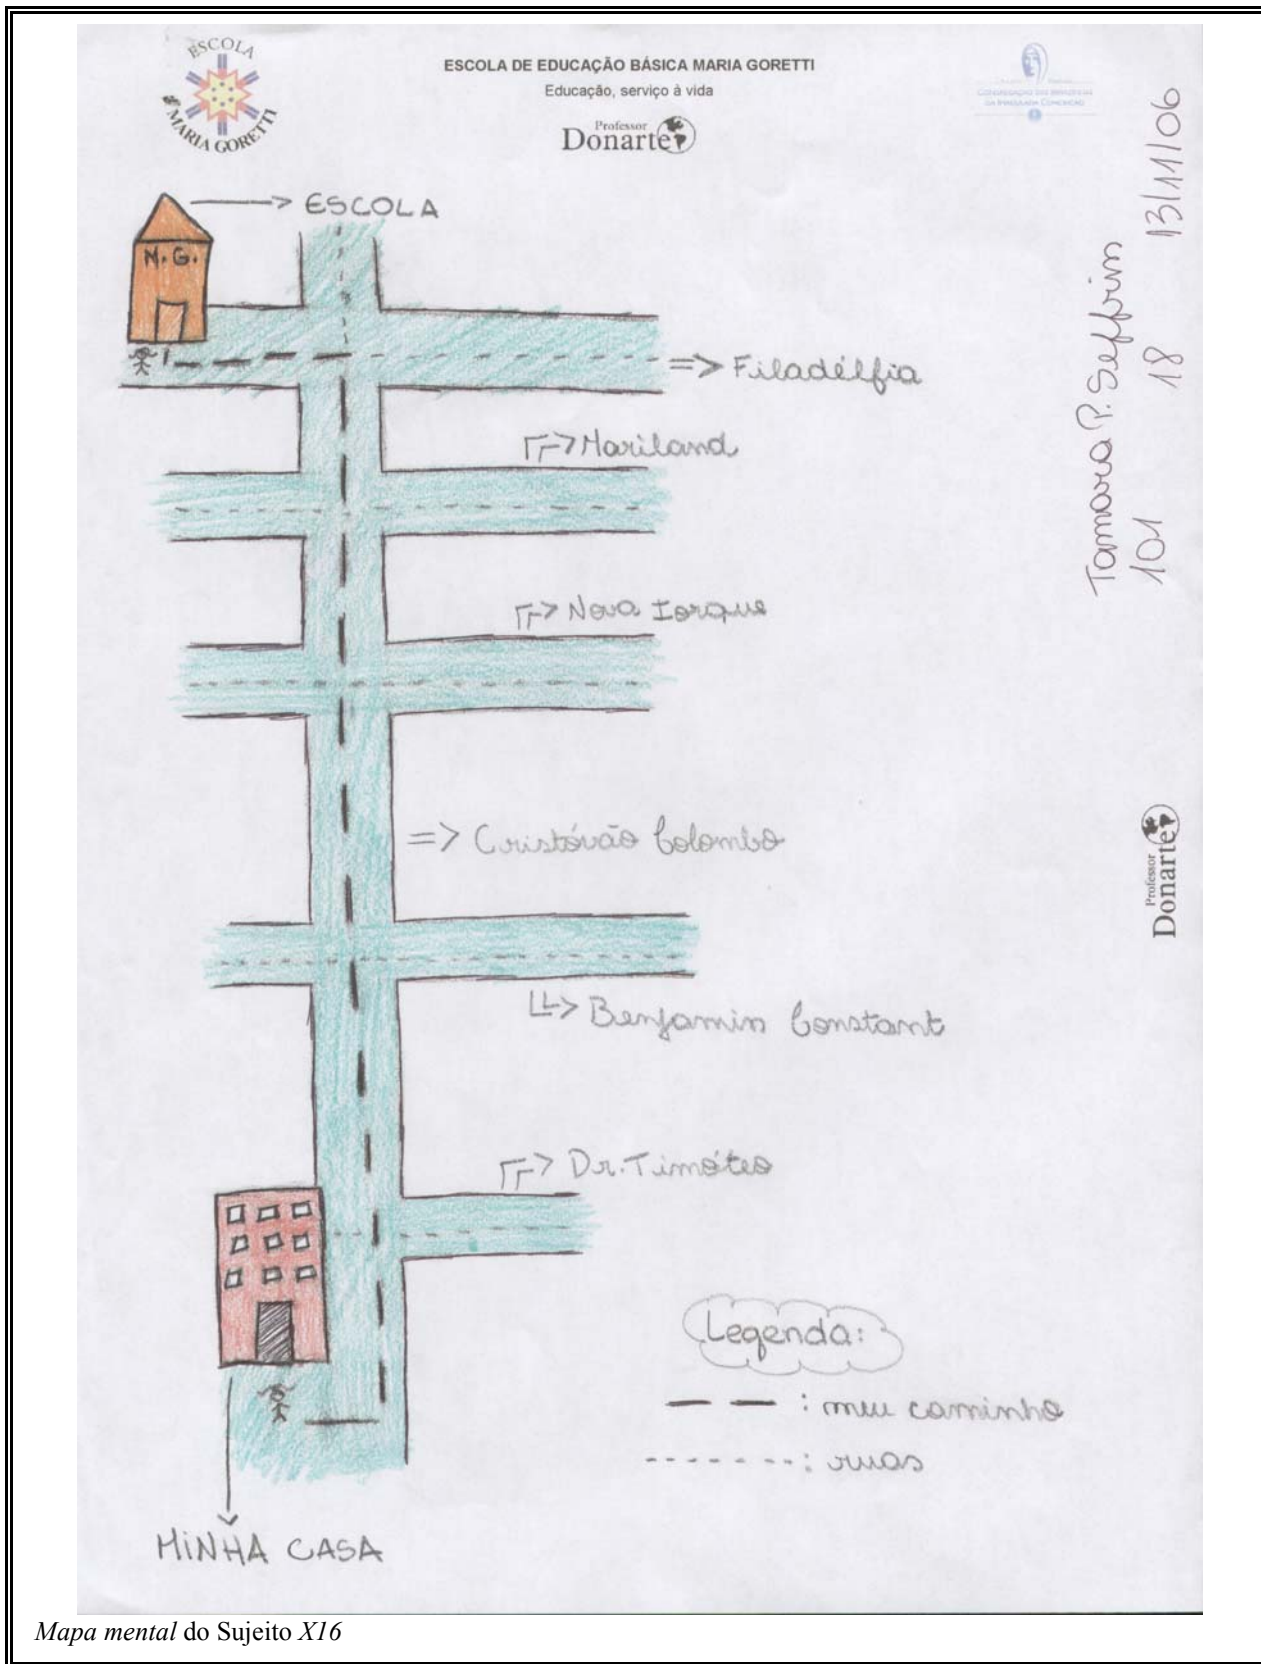 ESCOLA
MARIA GORETTI
ESCOLA DE EDUCAÇÃO BÁSICA MARIA GORETTI
Educação, serviço à vida
Professor
Donarte
CONGREGAÇÃO DAS IRMÃZINHAS
DA IMACULADA CONCEIÇÃO
Tamara P. Seffrin 13/11/06
101 18
-> ESCOLA
M.G.
=> Filadélfia
=> Mariland
=> Nova Iorque
=> Cristóvão Colombo
=> Benjamin Constant
=> Dr. Timóteo
Professor
Donarte
Legenda:
— — : meu caminho
-------: ruas
MINHA CASA
Mapa mental do Sujeito X16